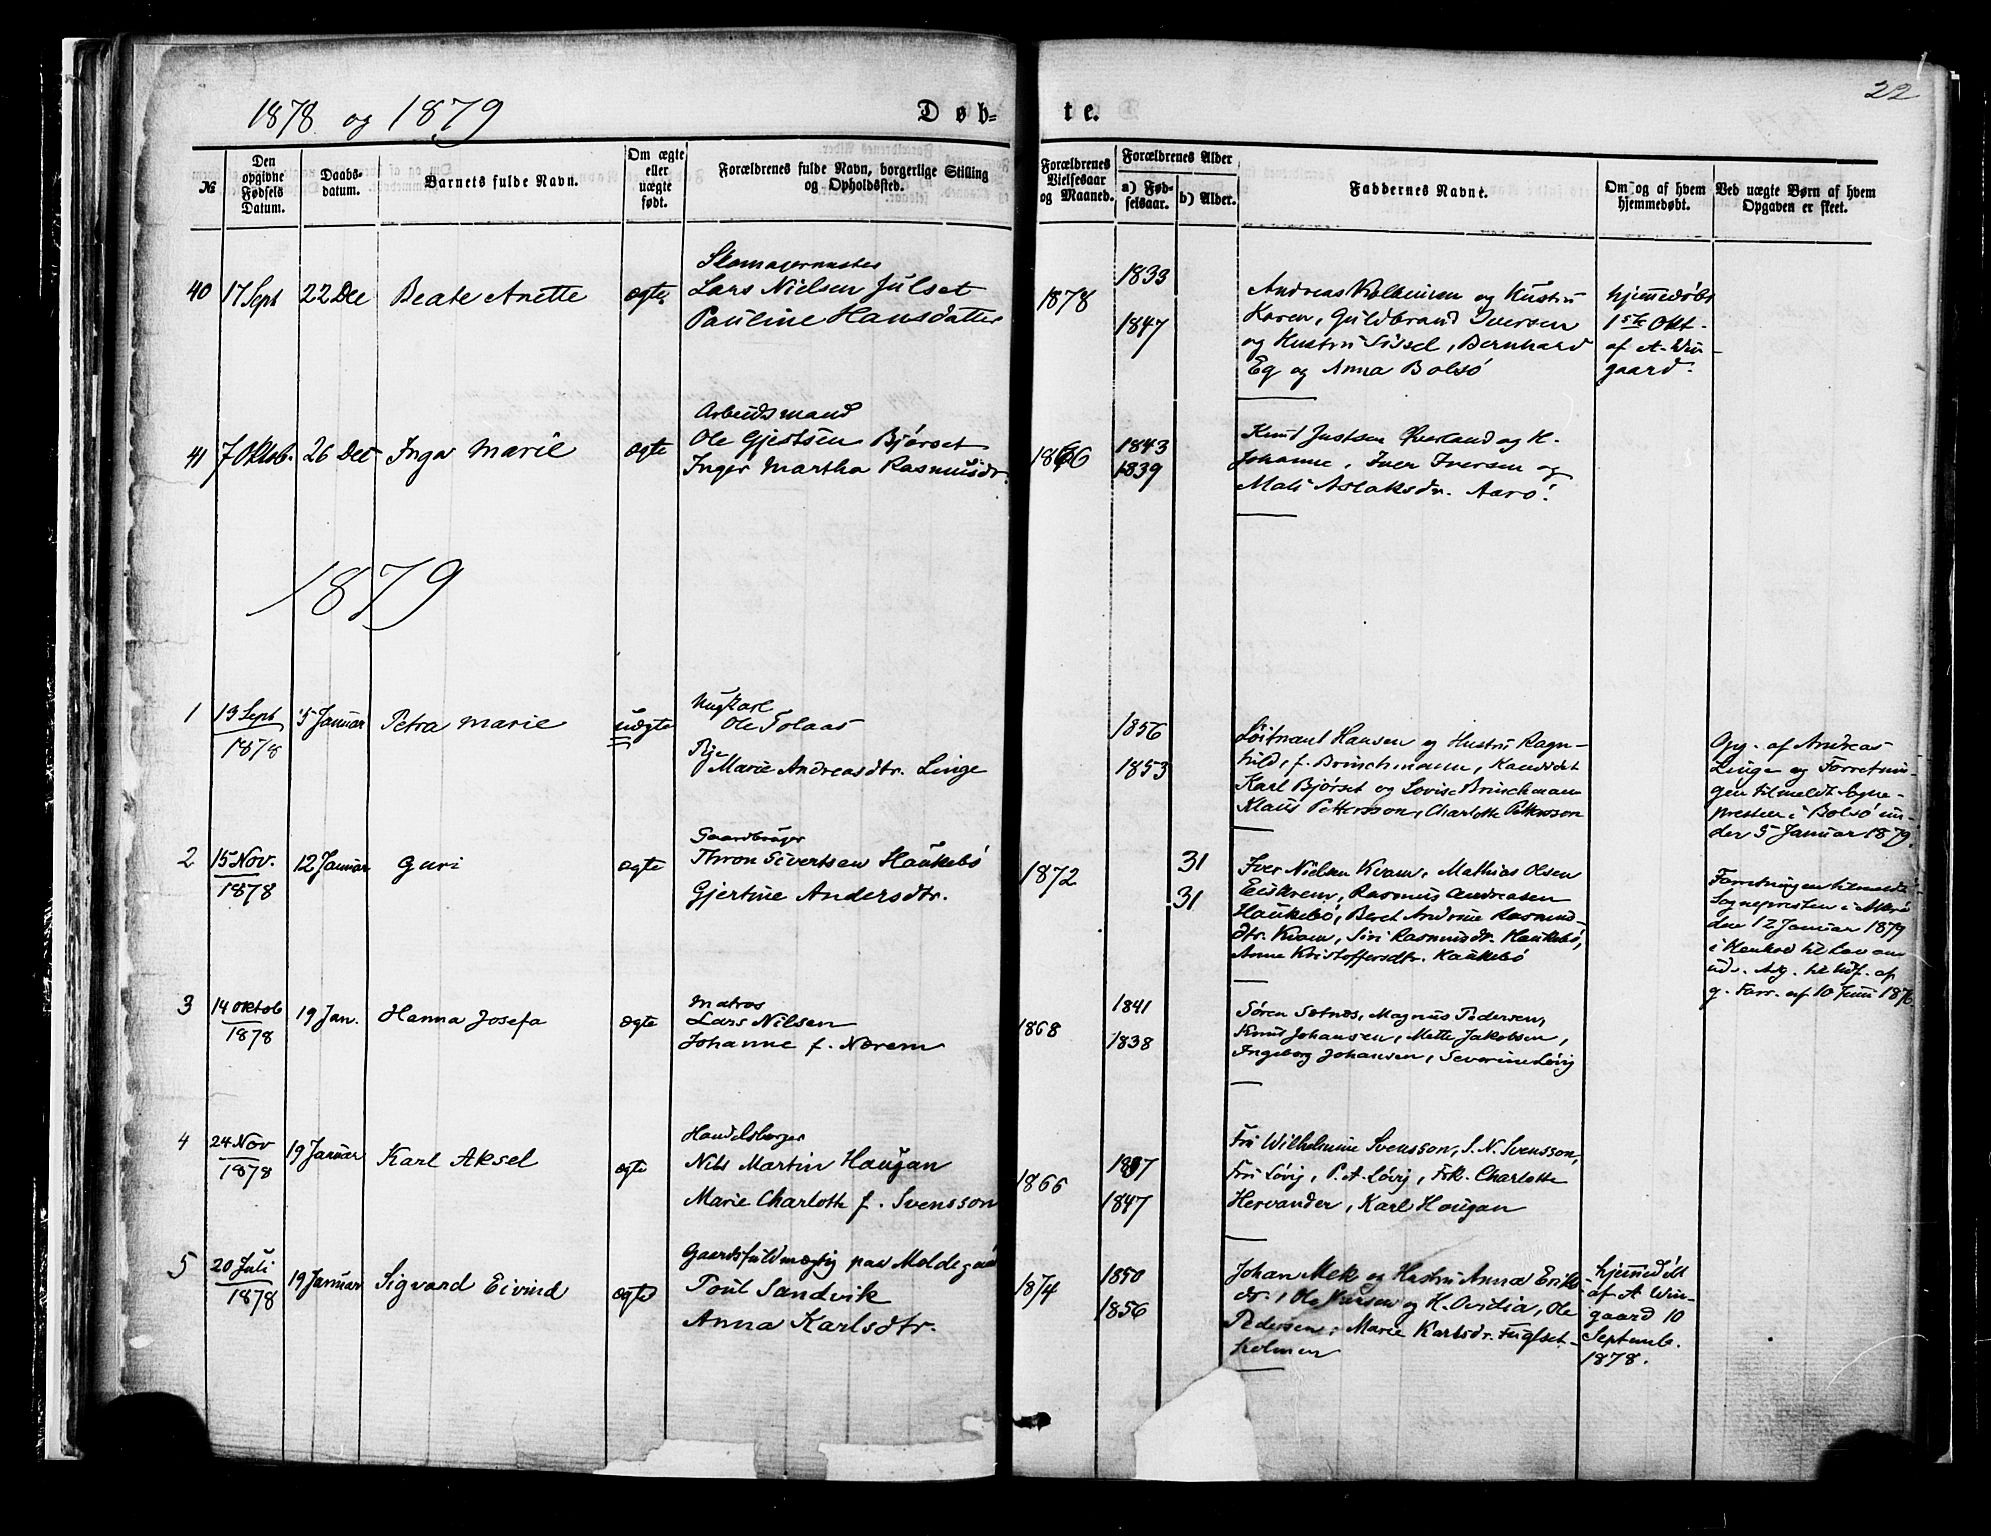 1878 og 1879
Døb-
te.
22
№
Den opgivne Fødsels Datum.
Daabs-datum.
Barnets fulde Navn.
Om ægte eller uægte født.
Forældrenes fulde Navn, borgerlige Stilling og Opholdssted.
Forældrenes Vielsesaar og Maaned.
Forældrenes Alder
a) Fød-selsaar.
b) Alder.
Faddernes Navne.
Om og af hvem hjemmedøbt.
Ved uægte Børn af hvem Opgaven er skeet.
40 17 Sept 22 Dec Beate Anette ægte
Skomagermester
Lars Nielsen Julset
Pauline Hansdatter
1878
1833
1847
Andreas og Hustru
Karen, Guldbrand Iversen
og Hustru Sissel, Bernhard
Eg og Anna Bolsø
hjemmedøbt
1ste Okt.
af A. Win-
gaard.
41 7 Oktob. 26 Dec Inga Marie ægte
Arbeidsmand
Ole Gjertsen Bjørset
Inger Martha Rasmusdr.
1866
1843
1839
Knud Justsen Øverland og H.
Johanne, Iver Iversen og
Mali Aslaksdr. Aarø.
1879
1 13 Sept 1878 5 Januar Petra Marie uægte
Ungkarl
Ole Tolaas
Pige
Marie Andreasdtr. Linge
1856
1853
Løitnant Hansen og Hustru Ragn-
hild, f. Brinchmann, Kandidat
Karl Bjørset og Lovise Brinchmann
Klaus Pettersson, Charlotte Pettersson
Opg. af Andreas
Linge og Forretnin-
gen tilmeldt Sogne-
presten i Bolsø un-
der 5 Januar 1879.
2 15 Nov. 1878 12 Januar Guri ægte
Gaardbruger
Thron Sivertsen Haukebø
Gjertine Andersdtr.
1872
31
31
Iver Nielsen Kvam, Mathias Olsen
Eeskrem, Rasmus Andreasen
Haukebø, Beret Andrine Rasmus-
dtr. Kvam, Siri Rasmusdtr. Haukebø,
Anne Kristoffersdtr. Haukebø
Forretningen tilmeldt
Sognepresten i
den 12 Januar 1879
i Henhold til Lov om
til
g. Forr. af 10 Juni 1876.
3 14 Oktob 1878 19 Jan. Hanna Josefa ægte
Matros
Lars Nilsen
Johanne f. Nærem
1868
1841
1838
Søren Sætnæs, Magnus Pedersen,
Knud Johansen, Mette Jakobsen,
Ingeborg Johansen, Severine Løvig
4 24 Nov 1878 19 Januar Karl Aksel ægte
Handelsborger
Nils Martin Haugan
Marie Charlotte f. Svensson
1866
1837
1847
Fru Wilhelmine Svensson, S. N. Svensson,
Fru Løvig, P. A. Løvig, Frk. Charlotte
Hervander, Karl Hougan
5 20 Juli 1878 19 Januar Sigvard Eivind ægte
Gaardsfuldmægtig paa Moldegaard
Poul Sandvik
Anna Karlsdtr.
1874
1850
1856
Johan Mek og Hustru Anna Eriks-
dr., Ole Iversen og H. Ovidia, Ole
Pedersen, Marie Karlsdr. Fuglset-
holmen
hjemmedøbt
af A Win-
gaard 10
Septemb.
1878.